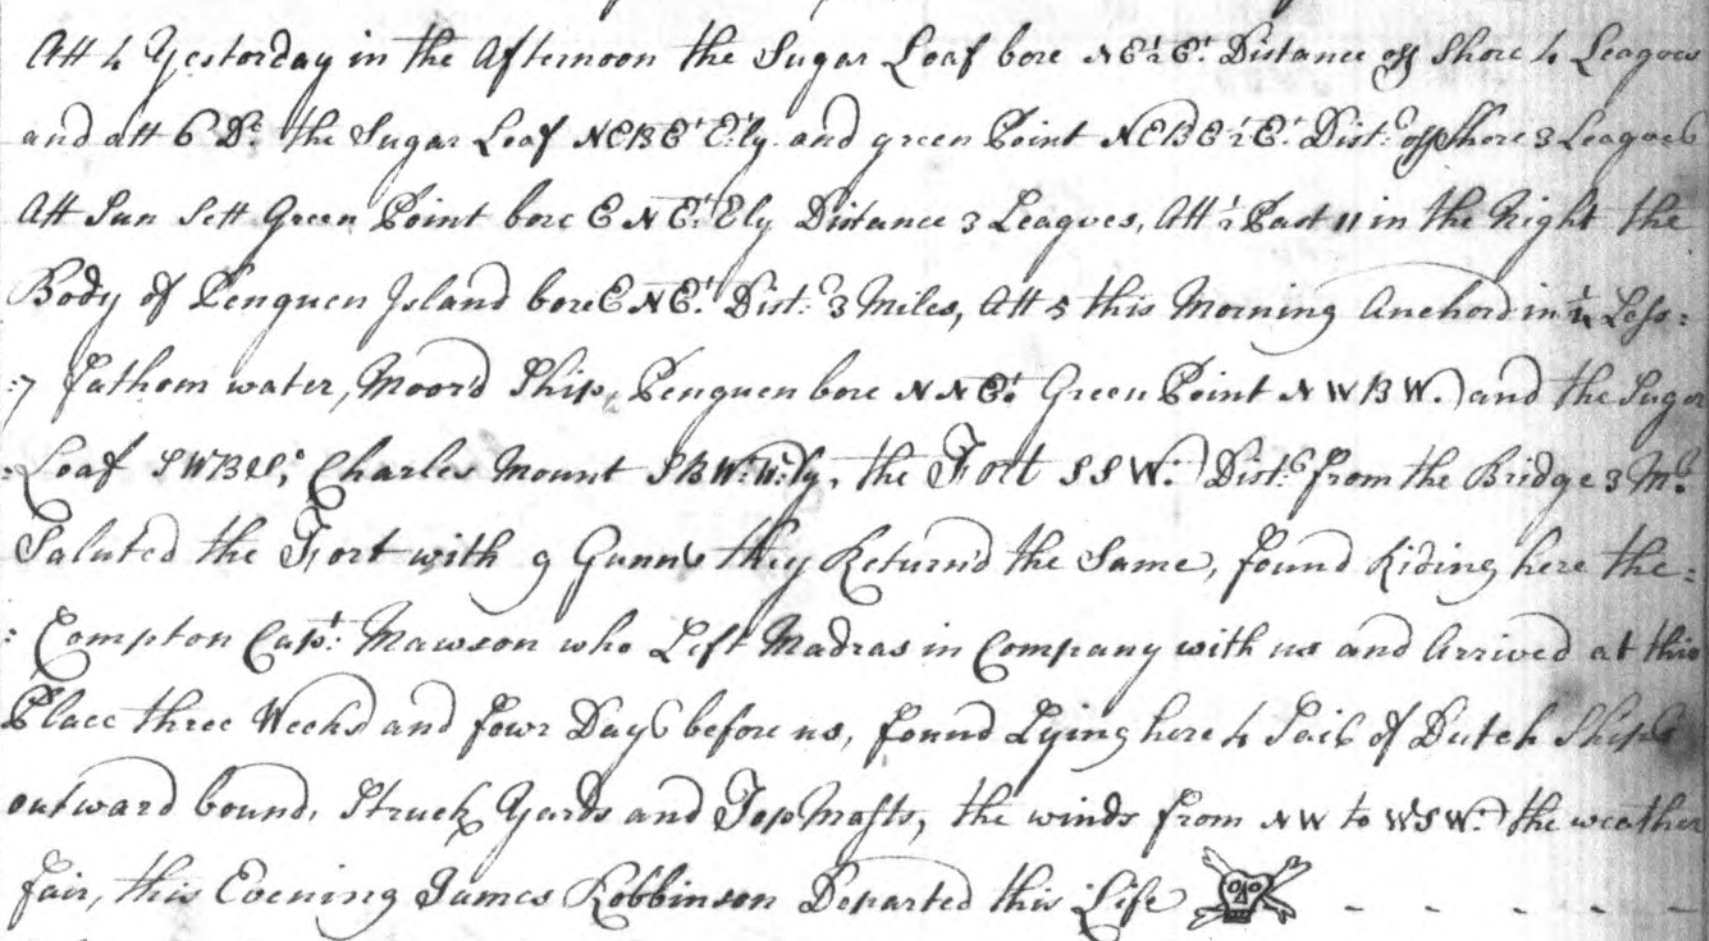 Att 4 Yestorday in the Afternoon the Sugar Loaf bore NE½Et. Distance off Shore 4 Leagues
and att 6 Do. the Sugar Loaf NEBEt Et:ly and green Point NEBE½Et. Dist:ce off Shore 3 Leagues
Att Sun Sett Green Point bore ENEt: Ely Distance 3 Leagues, Att ½ Past 11 in the Night the
Body of Penguen Island bore ENEt. Dist:ce 3 Miles, Att 5 this Morning Anchord in ¼ Less:
:7 fathom water, Moord Ship, Penguen bore NNEt. Green Point NWBW. and the Sugar
:Loaf SWBSo, Charles Mount SBW:W:ly, the Fort SSW. Dist:ce from the Bridge 3 Ms.
Saluted the Fort with 9 Gunns they Returnd the Same, found Riding here the:
:Compton Capt: Mawson who Left Madras in Company with us and Arrived at this
Place three Weeks and fowr Days before us, found Lying here 4 Sail of Dutch Ships
outward bound, Struck Yards and TopMasts, the winds from NW to WSW. the weather
fair, this Evening James Robbinson Departed this Life - - - - -